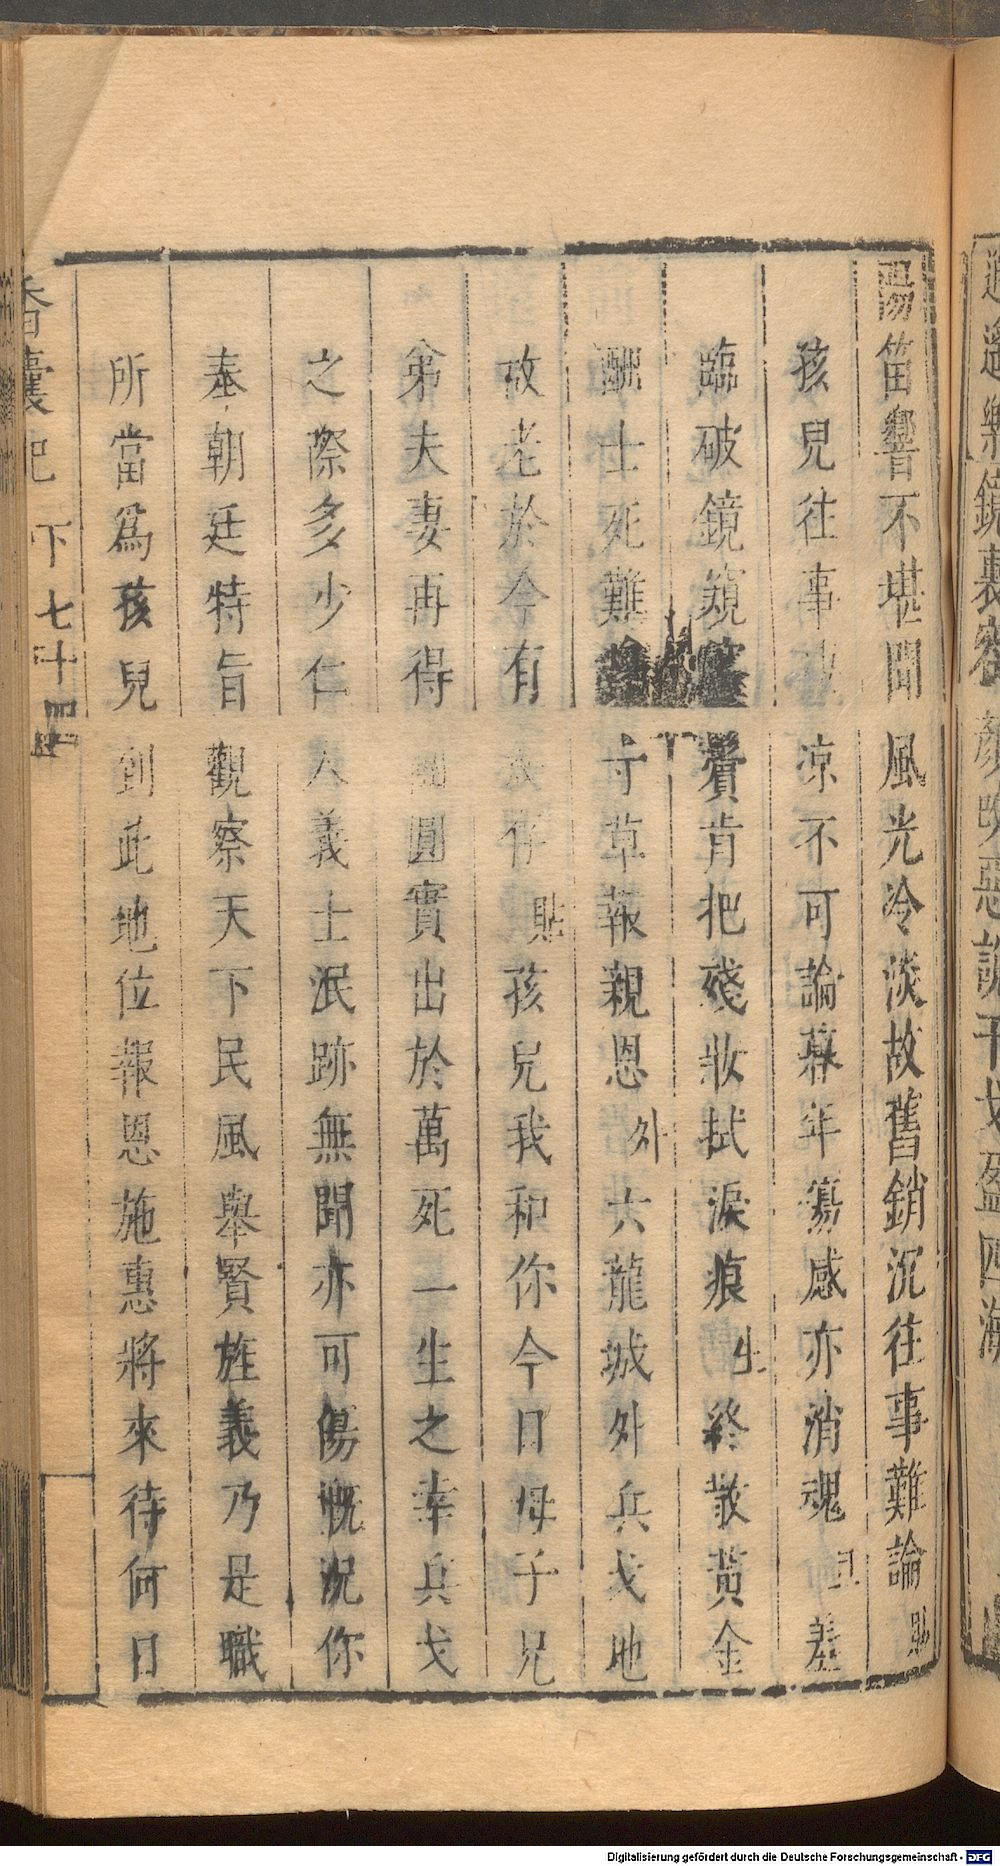 逍遥樂鏡裏容顔咲惡說干戈盈四海
陽笛響不堪聞風光冷淡故舊銷沉往事難論貼
孩兒往事凄凉不可論暮年傷感亦消魂旦羞
臨破鏡窺鬢肯把殘妝拭淚痕生終散黃金
酬士死難寸草報親恩外大龍城外兵戈地
故老於今有存貼孩兒我和你今日母子兄
弟夫妻再得圓實出於萬死一生之幸兵戈
之際多少仁人義士泯跡無聞亦可傷慨況你
奉朝廷特旨觀察天下民風舉賢旌義乃是職
所當爲孩兒到此地位報恩施惠將來待何日
香囊記 下 七十四
Digitalisierung gefördert durch die Deutsche Forschungsgemeinschaft - DFG